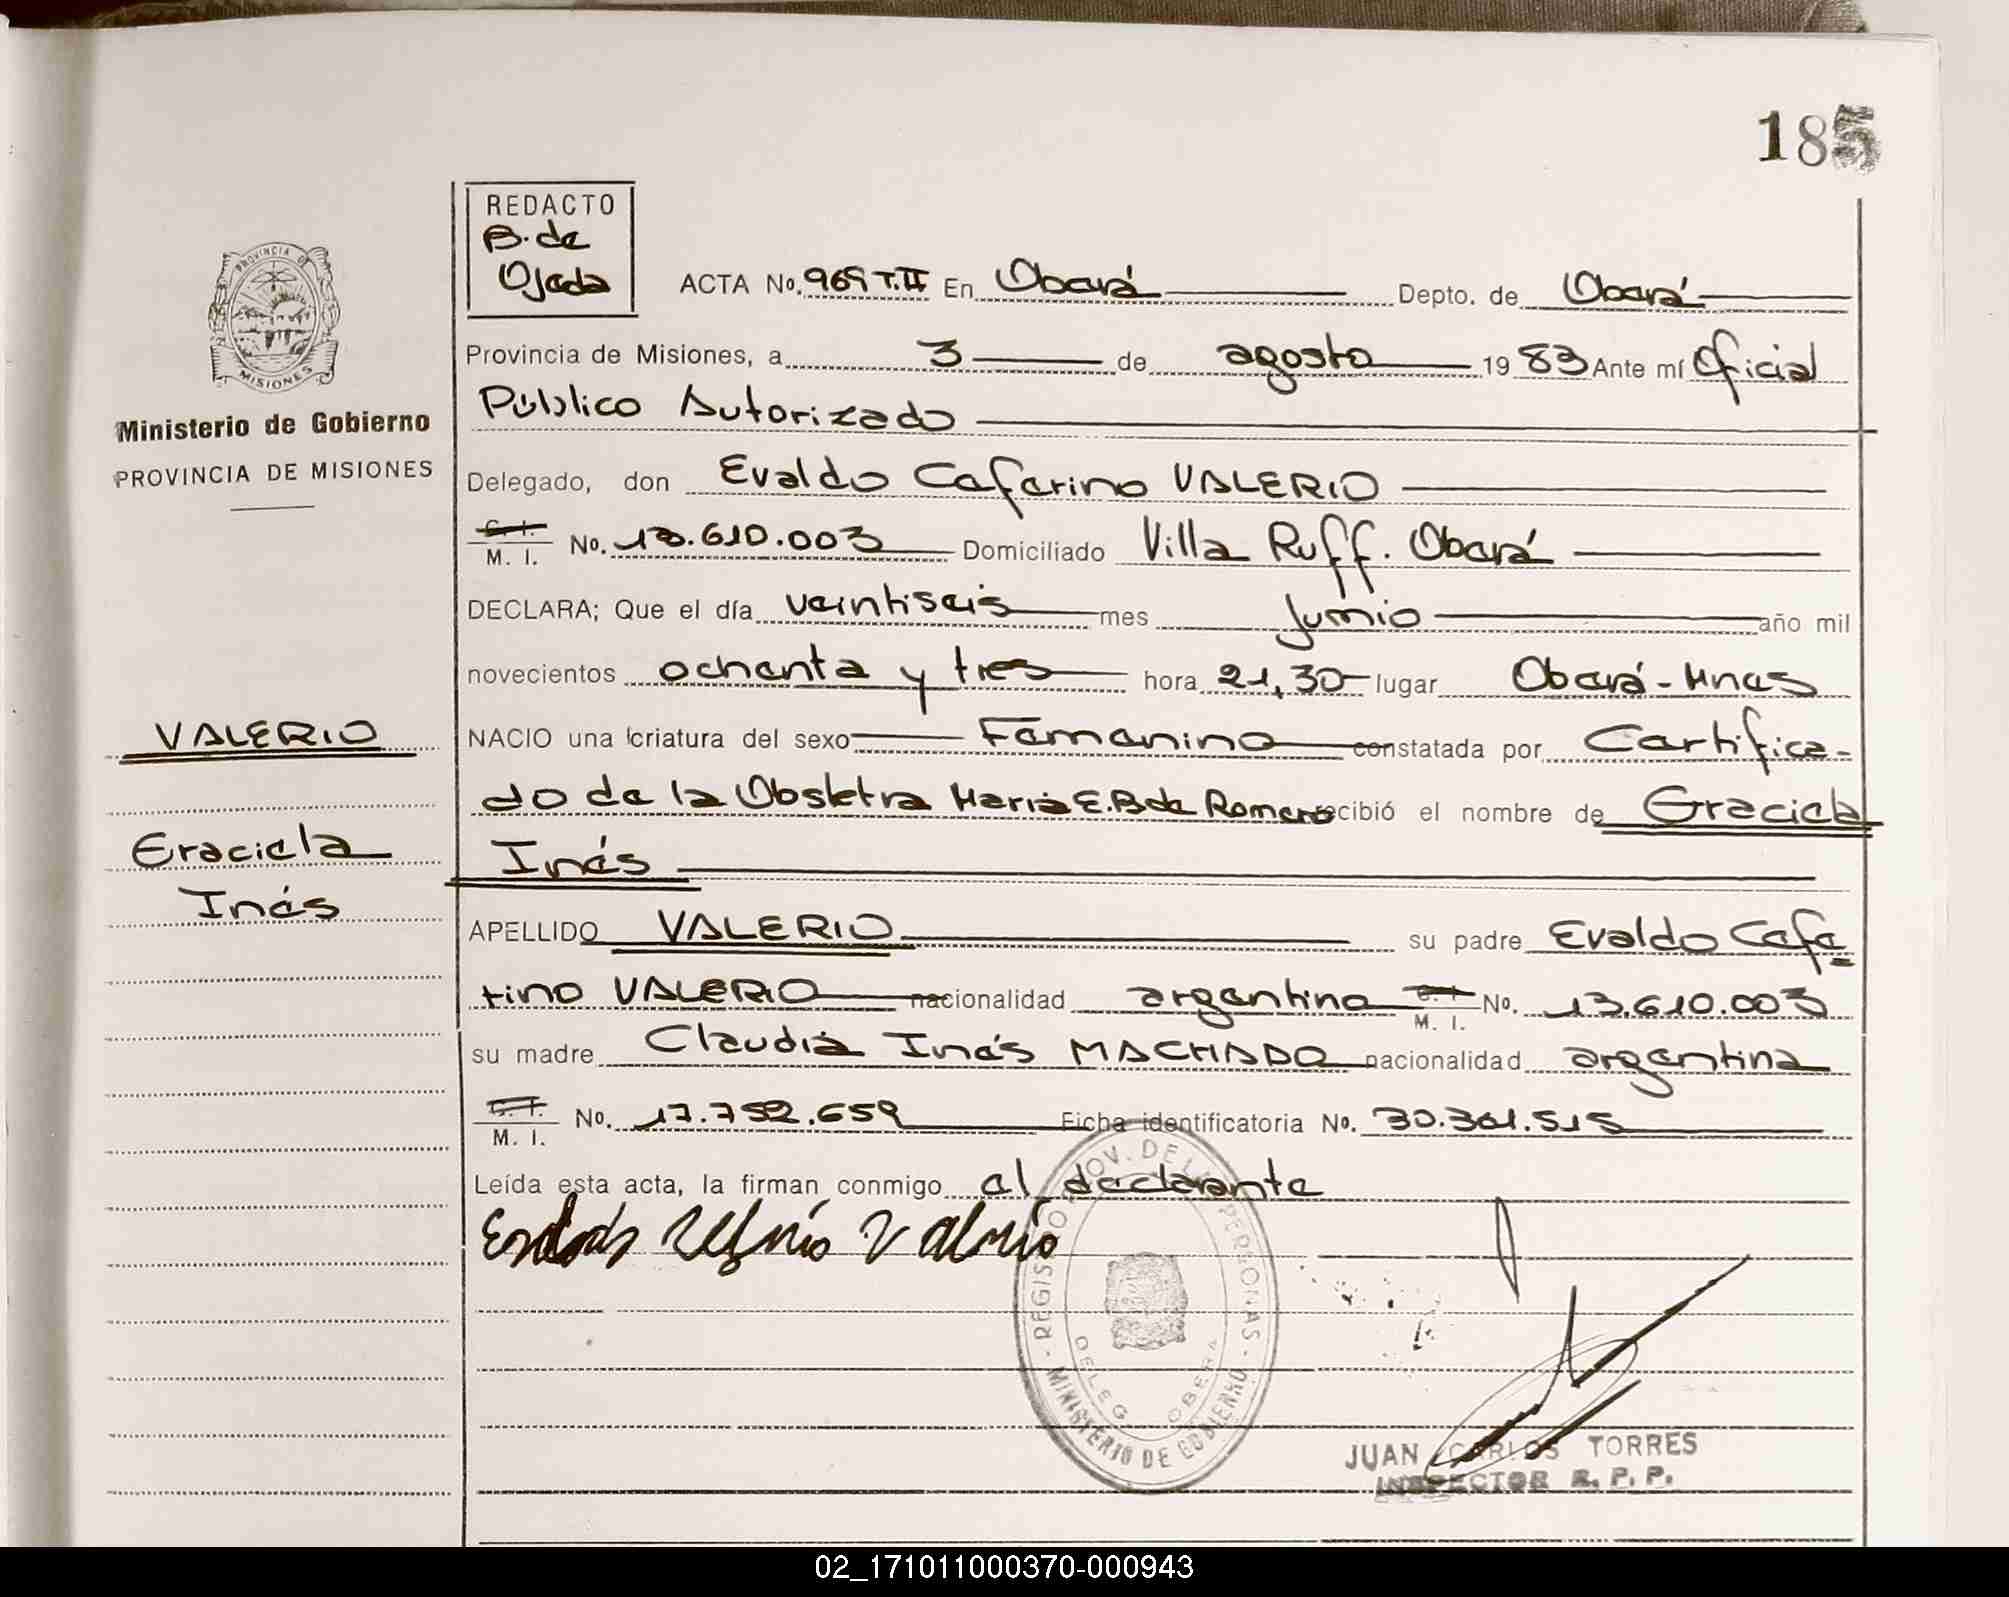 185
REDACTO
B. de
Ojeda
ACTA No. 969 T.II En Oberá Depto. de Oberá
Provincia de Misiones, a 3 de agosto 1983 Ante mí Oficial
Público Autorizado
PROVINCIA DE
MISIONES
Ministerio de Gobierno
PROVINCIA DE MISIONES
Delegado, don Evaldo Ceferino VALERIO
C. I.
M. I. No. 13.610.003 Domiciliado Villa Ruff. Oberá
DECLARA; Que el día veintiseis mes Junio año mil
novecientos ochenta y tres hora 21,30 lugar Oberá - Mnes
VALERIO
NACIO una criatura del sexo Femenino constatada por Certifica-
do de la Obstetra Maria E. B de Romero recibió el nombre de Graciela
Graciela
Inés
Inés
APELLIDO VALERIO su padre Evaldo Cefe
rino VALERIO nacionalidad argentino C. I. M. I. No. 13.610.003
su madre Claudia Inés MACHADO nacionalidad argentina
C. I.
M. I. No. 17.752.659 Ficha identificatoria No. 30.361.515
Leída esta acta, la firman conmigo el declarante
REGISTRO PROV. DE LAS PERSONAS
DELEG. OBERA
MINISTERIO DE GOBIERNO
JUAN CARLOS TORRES
INSPECTOR R. P. P.
02_171011000370-000943